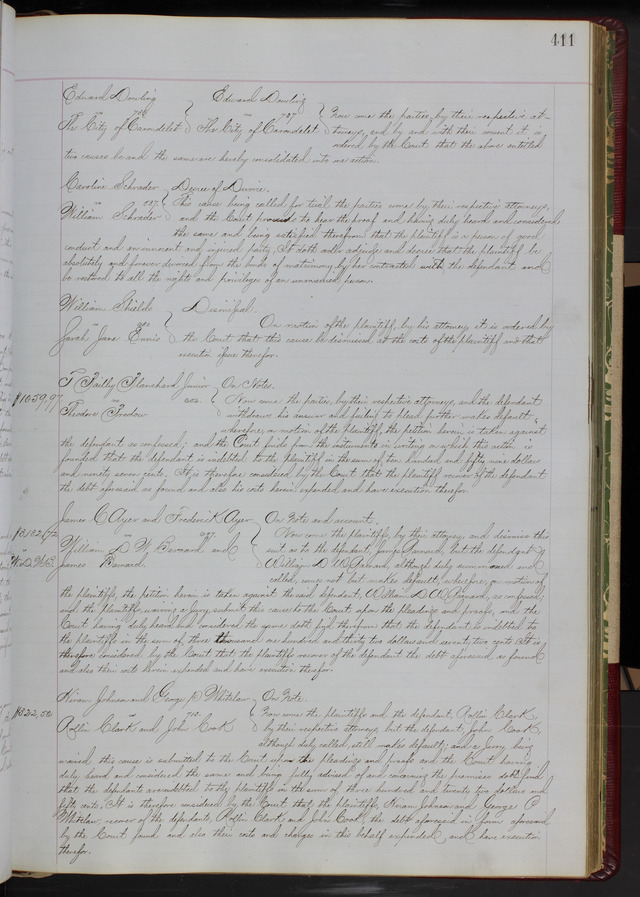 411
Edward Dowling Edward Dowling
vs vs 727 Now come the parties, by their respective at-
The City of Carondelet The City of Carondelet torneys, and by and with their consent it is
ordered by the Court that the above entitled
two causes be and the same are hereby consolidated into one action.
Caroline Schrader Decree of Divorce.
vs This cause being called for trial the parties come by their respective attorneys,
William Schrader and the Court proceeds to hear the proof and having duly heard and considered
the same and being satisfied therefrom that the plaintiff is a person of good
conduct and an innocent and injured party, It doth order adjudge and decree that the plaintiff be
absolutely and forever divorced from the bonds of matrimony by her contracted with the defendant and
be restored to all the rights and privileges of an unmarried person.
William Shields Dismissal.
vs On motion of the plaintiff, by his attorney it is ordered by
Sarah Jane Ennis the Court that this cause be dismissed at the costs of the plaintiff and that
execution issue therefor.
Blanchard Junior On Notes.
$1059,97 vs Now come the parties, by their respective attorneys, and the defendant
Theodore withdraws his answer and failing to plead further makes default,
wherefore, on motion of the plaintiff the petition herein is taken against
the defendant as confessed; and the Court finds from the instruments in writing on which this action is
founded that the defendant is indebted to the plaintiff in the sum of ten hundred and fifty nine dollars
and ninety seven cents. It is therefore considered by the Court that the plaintiff recover of the defendant
the debt aforesaid as found and also his costs herein expended and have execution therefor.
James C Ayer and Frederick Ayer On Note and account.
$3132,72 vs Now come the plaintiffs, by their attorney, and dismiss this
William D. W. Barnard and suit as to the defendant, James Barnard, but the defendant
James Barnard. William D. W. Barnard, although duly summoned and
called, comes not but makes default, wherefore, on motion of
the plaintiffs, the petition herein is taken against the said defendant, William D. W. Barnard, as confessed;
and the plaintiffs, waiving a Jury, submit this cause to the Court upon the pleadings and proofs, and the
Court having duly heard and considered the same doth find therefrom that the defendant is indebted to
the plaintiffs in the sum of three thousand one hundred and thirty two dollars and seventy two cents. It is
therefore considered by the Court that the plaintiffs recover of the defendant the debt aforesaid as found
and also their costs herein expended and have execution therefor.
Hiram Johnson and George P Whitelaw On Note.
$322,50 vs Now come the plaintiffs and the defendant, Rollin Clark,
Rollin Clark and John Cook by their respective attorneys but the defendant, John Cook,
although duly called, still makes default; and a Jury being
waived this cause is submitted to the Court upon the pleadings and proofs and the Court having
duly heard and considered the same and being fully advised of and concerning the premises doth find
that the defendants are indebted to the plaintiffs in the sum of three hundred and twenty two dollars and
fifty cents, It is therefore considered by the Court that the plaintiffs, Hiram Johnson and George P
Whitelaw recover of the defendants, Rollin Clark and John Cook, the debt aforesaid in form aforesaid
by the Court found and also their costs and charges in this behalf expended, and have execution
therefor.